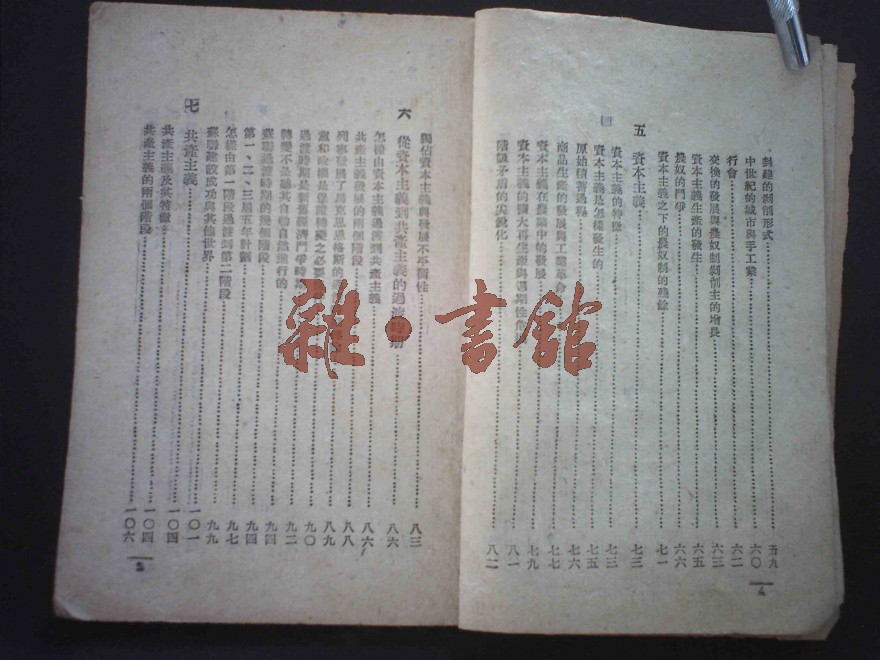 封建的剝削形式 五九
中世紀的城市與手工業 六〇
行會 六二
交換的發展與農奴制剝削主的增長 六三
資本主義生產的發生 六五
農奴的鬥爭 六六
資本主義之下的農奴制的殘餘 七一
五 資本主義 七三
資本主義的特徵 七三
資本主義是怎樣發生的
原始積蓄過程 七五
商品生產的發展與工業革命 七六
資本主義在農業中的發展 七七
資本主義的擴大再生產與週期性 七九
階級矛盾的尖銳化 八一
八二
4
獨佔資本主義與發展不平衡性 八三
六 從資本主義到共產主義的過渡時期 八六
怎樣由資本主義過渡到共產主義 八六
共產主義發展的兩個階段 八八
列寧發展了馬克思恩格斯的
黨和政權是保證轉變之必要 八九
過渡時期是新舊經濟鬥爭時期 九〇
轉變不是聽其自發自然進行的 九二
蘇聯過渡時期的幾個階段 九四
第一、二、三屆五年計劃 九四
怎樣由第一階段過渡到第二階段 九七
蘇聯建設成功與其他世界 九九
七 共產主義 一〇一
共產主義及其特徵 一〇四
共產主義的兩個階段 一〇四
一〇六
5
雜·書館